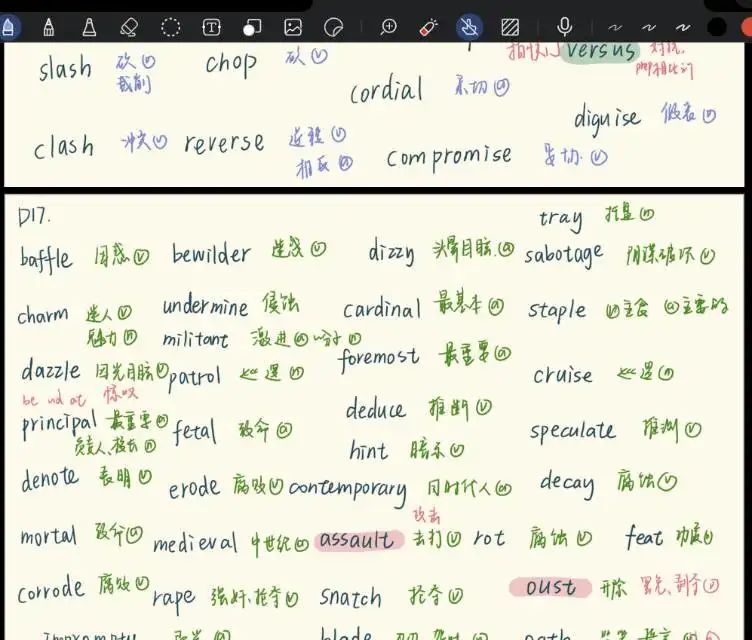 slash 砍 ⓥ chop 砍 ⓥ 拍快门 versus 对抗
裁削 cordial 亲切 ⓐ
diguise 假装 ⓥ
clash 冲突 ⓥ reverse 逆转 ⓥ
相反 ⓐ compromise 妥协 ⓥ
D17. tray 托盘 ⓝ
baffle 困惑 ⓥ bewilder 迷惑 ⓥ dizzy 头晕目眩 ⓐ sabotage 阴谋破坏 ⓥ
charm 迷人 ⓥ undermine 侵蚀 cardinal 最基本 ⓐ staple ⓝ主食 ⓐ主要的
魅力 ⓝ militant 激进 ⓐ 分子 ⓝ
foremost 最重要 ⓐ
dazzle 因光目眩 ⓥ patrol 巡逻 ⓝ cruise 巡逻 ⓝ
be nd at 惊叹
principal 最重要 ⓐ deduce 推断 ⓥ
负责人、校长 ⓝ fetal 致命 ⓐ speculate 推测 ⓥ
hint 暗示 ⓥ
denote 表明 ⓥ erode 腐败 ⓥ contemporary 同时代人 ⓐ decay 腐蚀 ⓥ
攻击
mortal 致命 ⓐ medieval 中世纪 ⓐ assault 去打 ⓥ rot 腐蚀 ⓥ feat 功绩 ⓝ
corrode 腐败 ⓥ rape 强奸、抢夺 ⓥ snatch 抢夺 ⓥ oust 开除 罢免、剥夺 ⓥ
impromptu blade oath